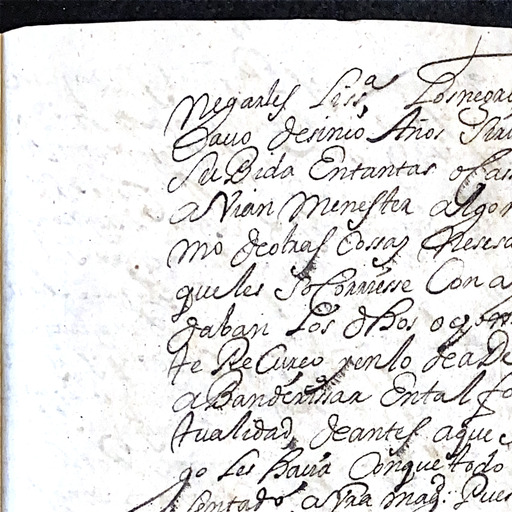 negarles liss.ª Los negar
Cauo desinco Años
su Bida En tantas ocas
a Vian Menester algo
mo de otras Cossas
que les soCorriesse Con a
daban Los dhos
te ReCurco y en lo de a De
a Banderissar En tal fo
tualidad, de antes aque
go les havia Con que todo
sentado, a Vra Magd: Pues